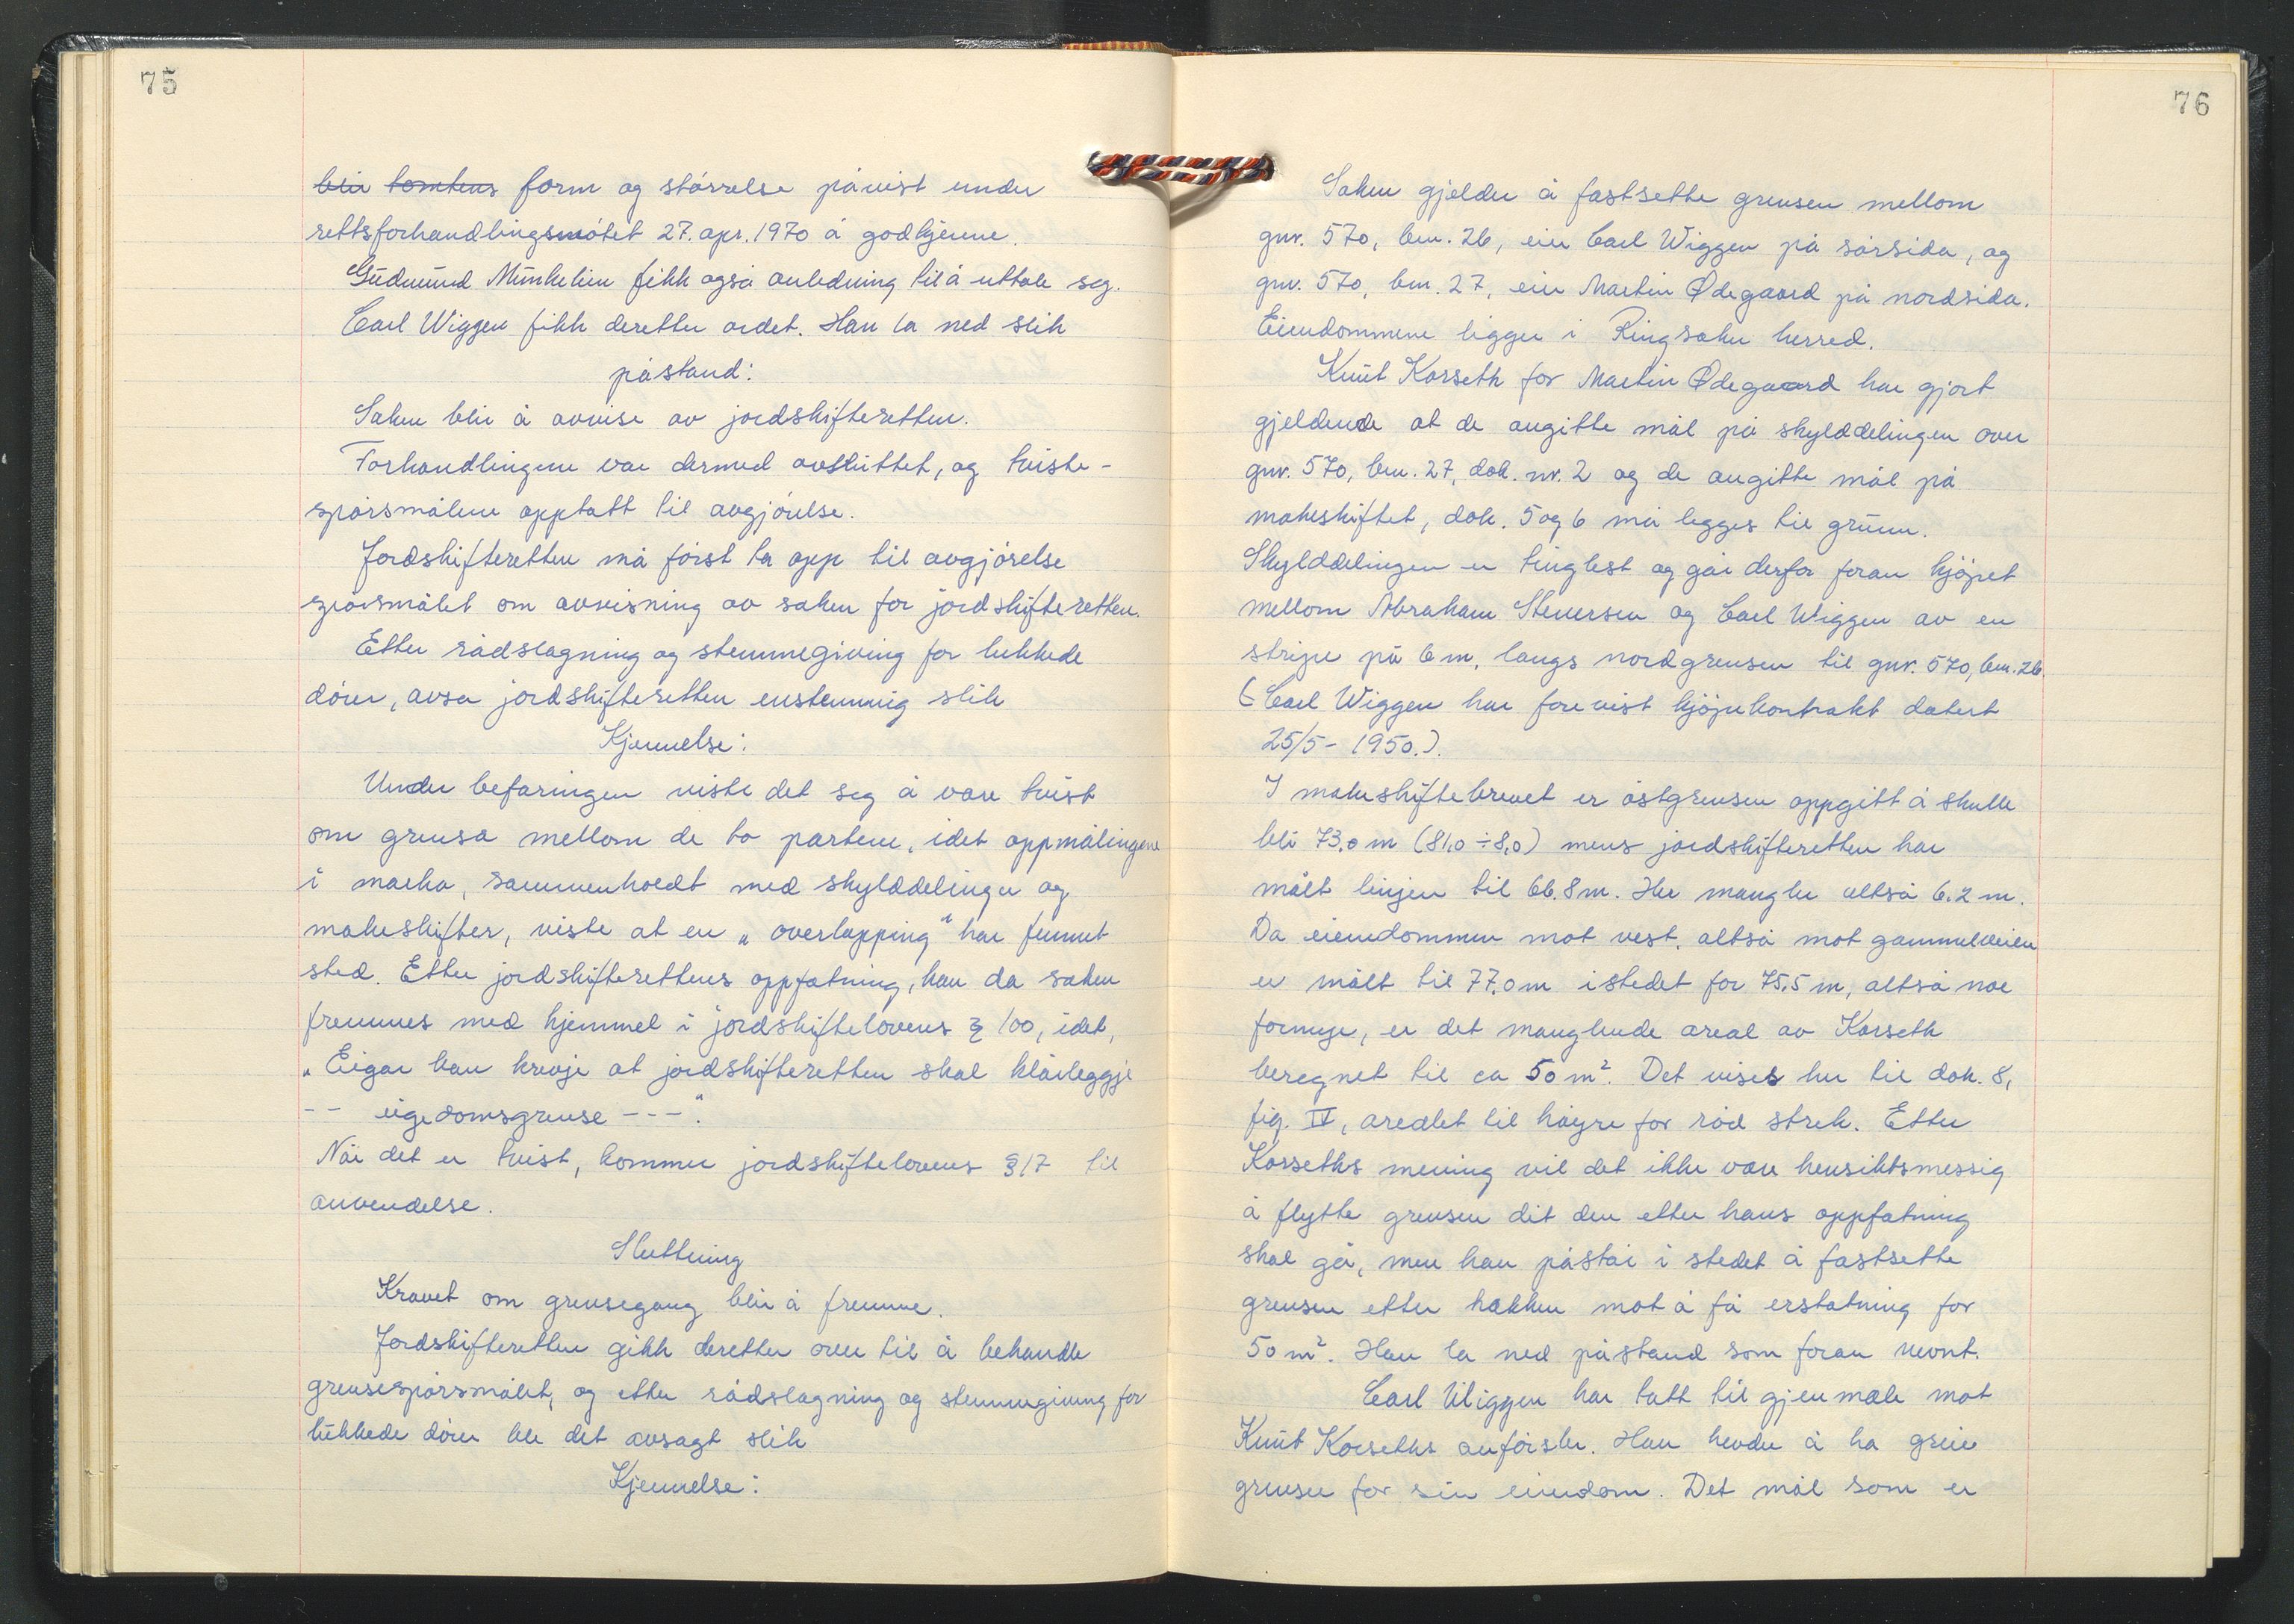 75
blir tomtens form og størrelse påvist under
rettsforhandlingsmøtet 27. apr. 1970 å godkjenne.
Gudmund Munkelien fikk også anledning til å uttale seg.
Carl Wiggen fikk deretter ordet. Han la ned slik
påstand:
Saken blir å avvise av jordskifteretten.
Forhandlingene var dermed avsluttet, og tviste-
spørsmålene opptatt til avgjørelse.
Jordskifteretten må først ta opp til avgjørelse
spørsmålet om avvisning av saken for jordskifteretten.
Etter rådslagning og stemmegiving for lukkede
dører, avsa jordskifteretten enstemmig slik
Kjennelse:
Under befaringen viste det seg å være tvist
om grensa mellom de to partene, idet oppmålingene
i marka, sammenholdt med skylddelinger og
makeskifter, viste at en „overlapping" har funnet
sted. Etter jordskifterettens oppfatning, kan da saken
fremmes med hjemmel i jordskiftelovens § 100, idet,
„Eigar kan krevje at jordskifteretten skal klårleggje
-- eigedomsgrense ---".
Når det er tvist, kommer jordskiftelovens § 17 til
anvendelse.
Slutning
Kravet om grensegang blir å fremme.
Jordskifteretten gikk deretter over til å behandle
grensespørsmålet, og etter rådslagning og stemmegiving for
lukkede dører ble det avsagt slik
Kjennelse:
76
Saken gjelder å fastsette grensen mellom
gnr. 570, bnr. 26, eier Carl Wiggen på sørsida, og
gnr. 570, bnr. 27, eier Martin Ødegaard på nordsida.
Eiendommene ligger i Ringsaker herred.
Knut Korseth for Martin Ødegaard har gjort
gjeldende at de angitte mål på skylddelingen over
gnr. 570, bnr. 27, dok. nr. 2 og de angitte mål på
makeskiftet, dok. 5 og 6 må legges til grunn.
Skylddelingen er tinglest og går derfor foran kjøpet
mellom Abraham Stenersen og Carl Wiggen av en
stripe på 6 m, langs nordgrensen til gnr. 570, bnr. 26.
(Carl Wiggen har forevist kjøpekontrakt datert
25/5- 1950.).
I makeskiftebrevet er østgrensen oppgitt å skulle
bli 73,0 m (81,0 ÷ 8,0) mens jordskifteretten har
målt linjen til 66.8 m. Her mangler altså 6.2 m.
Da eiendommen mot vest, altså mot gammelveien
er målt til 77,0 m istedet for 75,5 m, altså noe
formye, er det manglende areal av Korseth
beregnet til ca 50 m². Det vises her til dok. 8,
fig. IV, arealet til høyre for rød strek. Etter
Korseths mening vil det ikke være hensiktsmessig
å flytte grensen dit den etter hans oppfatning
skal gå, men han påstår i stedet å fastsette
grensen etter hekken mot å få erstatning for
50 m². Han la ned påstand som foran nevnt.
Carl Wiggen har tatt til gjenmæle mot
Knut Korseths anførsler. Han hevder å ha greie
grenser for sin eiendom. Det mål som er